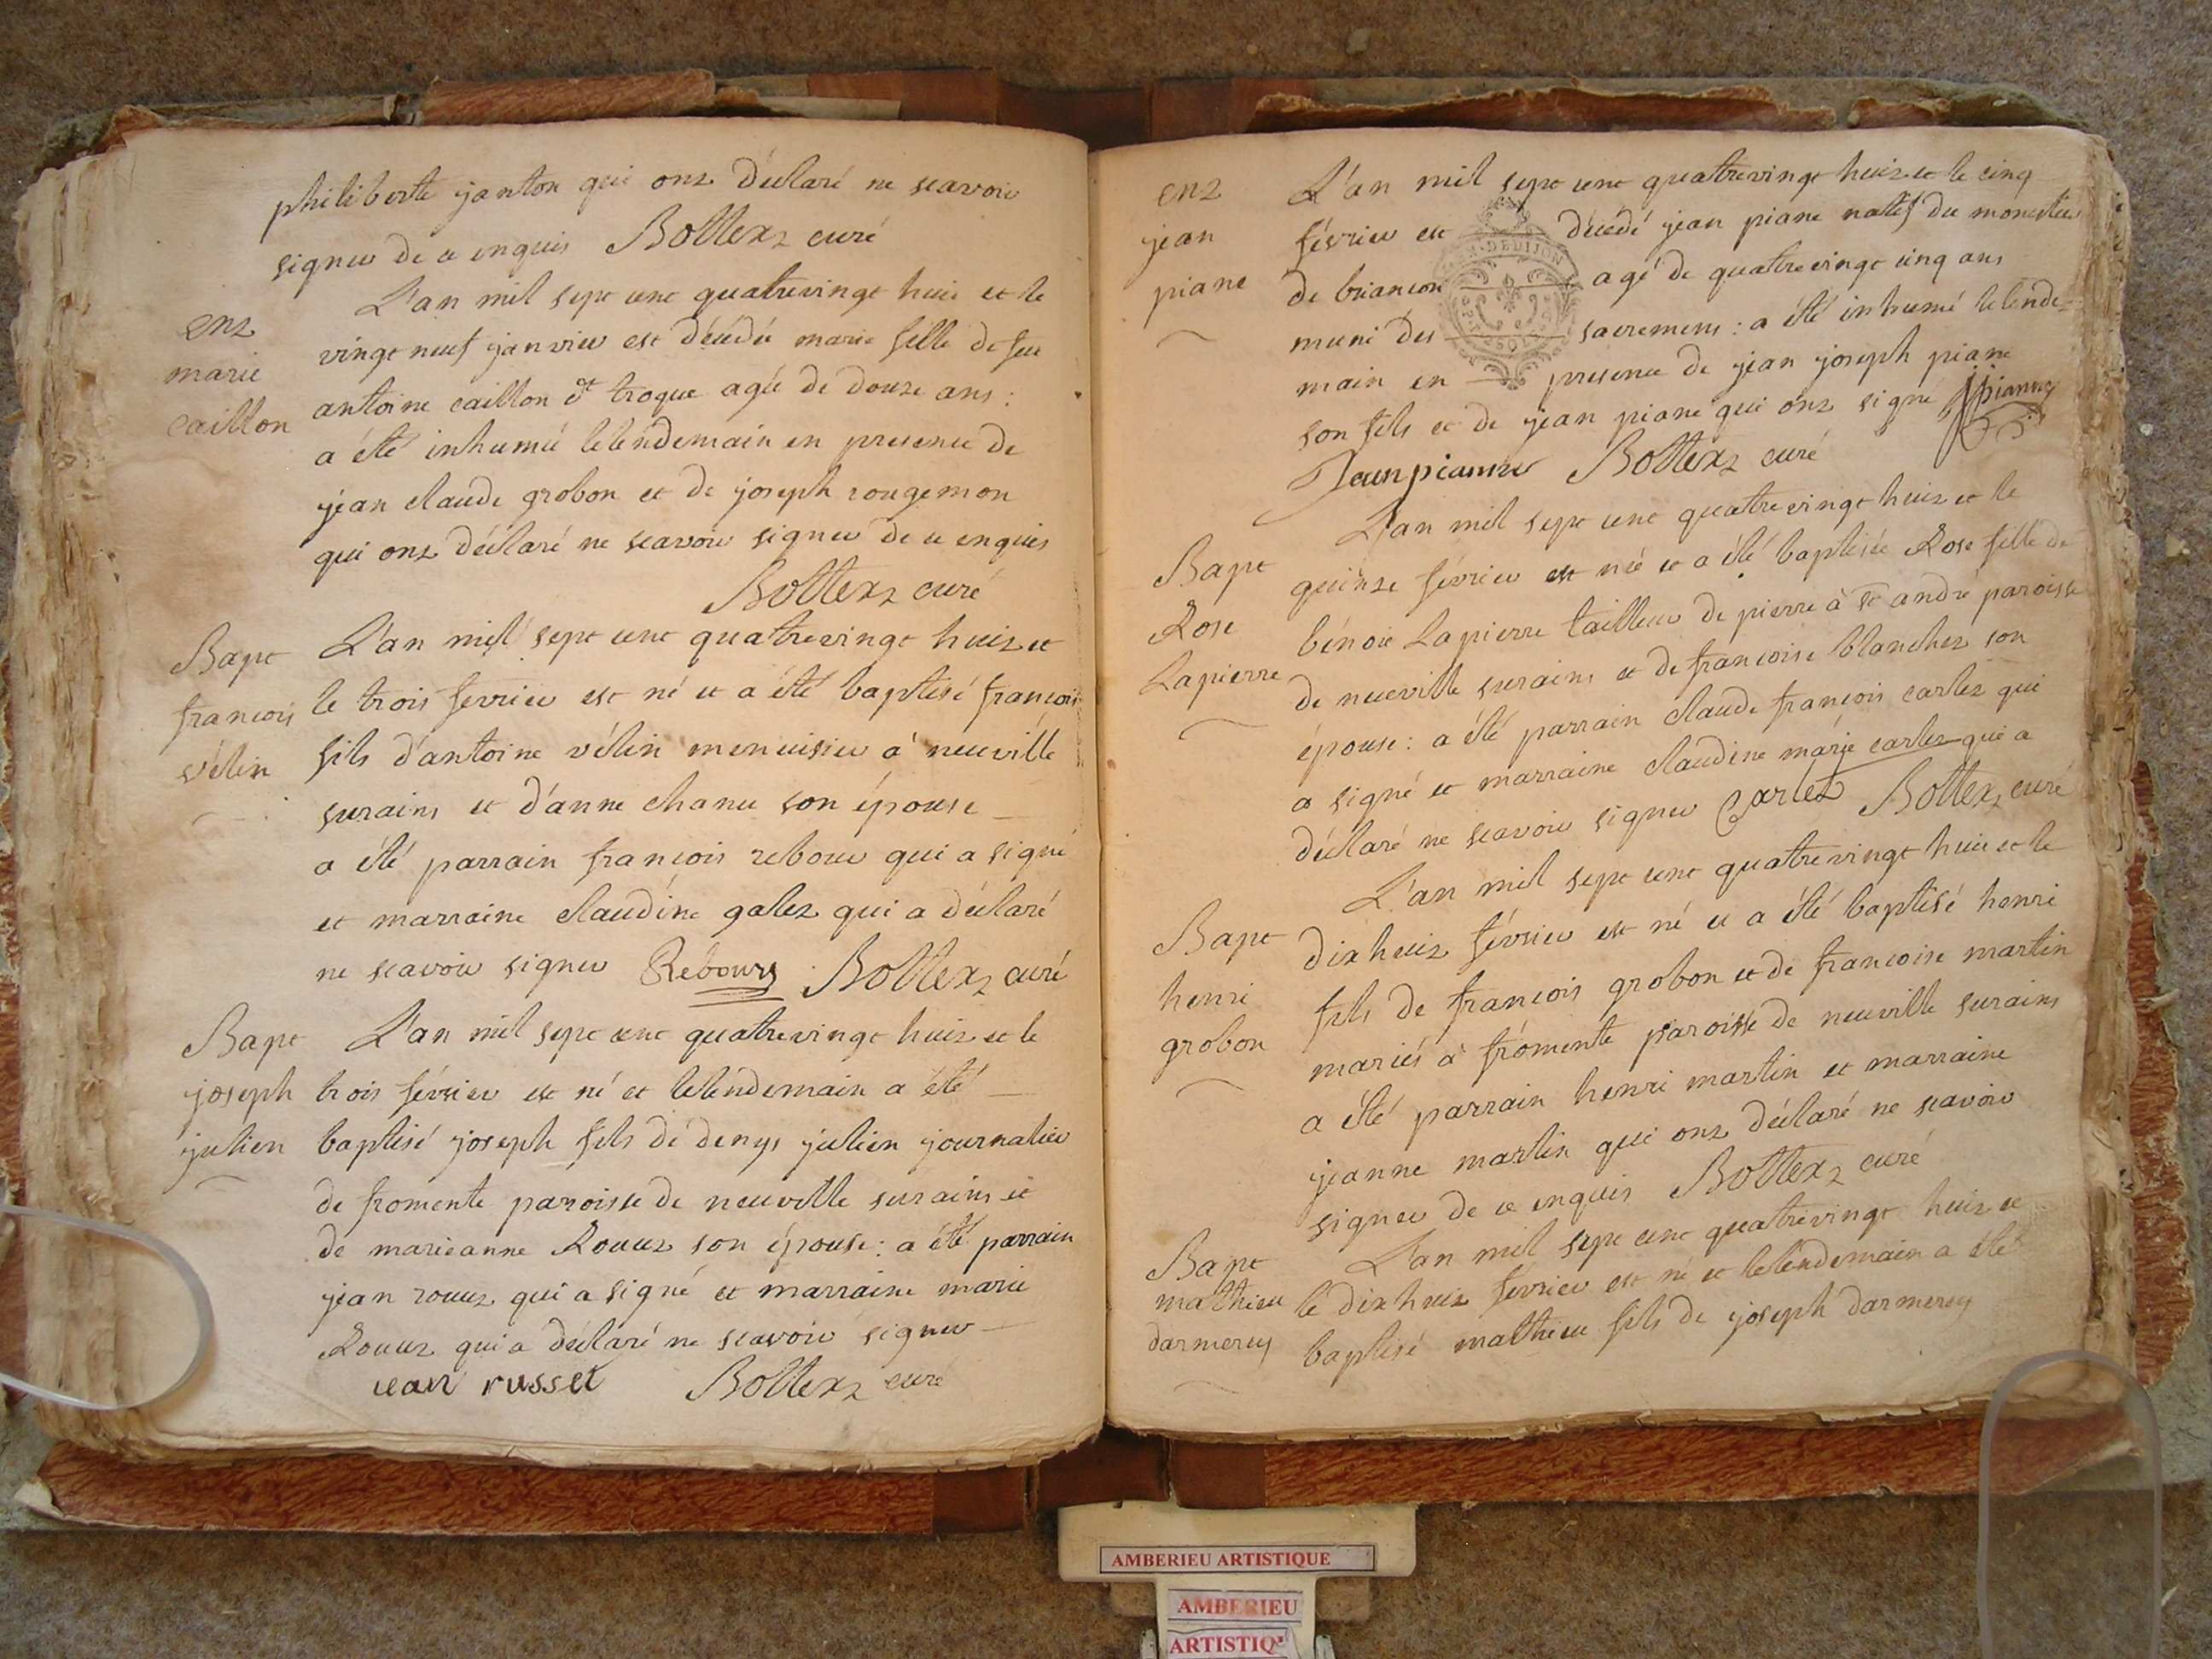 philiberte janton qui ont déclaré ne scavoir
signer de ce enquis Bottex curé
ent
marie
caillon
L'an mil sept cent quatrevingt huit et le
vingt neuf janvier est décédée marie fille de feu
antoine caillon dt troque agée de douze ans :
a été inhumée le lendemain en presence de
jean claude grobon et de joseph rougemon
qui ont déclaré ne scavoir signer de ce enquis
Bottex curé
Bapt
francois
vélin
L'an mil sept cent quatrevingt huit et
le trois fevrier est né et a été baptisé francois
fils d'antoine vélin menuisier à neuville
surains et d'anne chanu son épouse
a été parrain françois rebour qui a signé
et marraine claudine galez qui a déclaré
ne scavoir signer Rebours Bottex curé
Bapt
joseph
julien
L'an mil sept cent quatrevingt huit et le
trois février est né et le lendemain a été
baptisé joseph fils de denys julien journalier
de fromente paroisse de neuville surains et
de marieanne Rouuz son épouse : a été parrain
jean rouuz qui a signé et marraine marie
Rouuz qui a déclaré ne scavoir signer
jean russet Bottex curé
ent
jean
piane
L'an mil sept cent quatrevingt huit et le cinq
février est décédé jean piane natif du monestier
de briancon agé de quatrevingt cinq ans
muni des sacremens : a été inhumé le lende=
main en presence de jean joseph piane
son fils et de jean piane qui ont signé JJpianne
Jean pianne Bottex curé
Bapt
Rose
Lapierre
L'an mil sept cent quatrevingt huit et le
quinze février est née et a été baptisée Rose fille de
bénoit Lapierre tailleur de pierre à st andré paroisse
de neuville surains et de francoise blanchez son
épouse : a été parrain claude françois carlez qui
a signé et marraine claudine marie carlez qui a
déclaré ne scavoir signer Carlez Bottex curé
Bapt
henri
grobon
L'an mil sept cent quatrevingt huit et le
dixhuit février est né et a été baptisé henri
fils de francois grobon et de francoise martin
mariés à fromente paroisse de neuville surains
a été parrain henri martin et marraine
jeanne martin qui ont déclaré ne scavoir
signer de ce enquis Bottex curé
Bapt
mathieu
darmercy
L'an mil sept cent quatrevingt huit et
le dixhuit février est né et le lendemain a été
baptisé mathieu fils de joseph darmercy
AMBERIEU ARTISTIQUE
AMBERIEU
ARTISTIQ